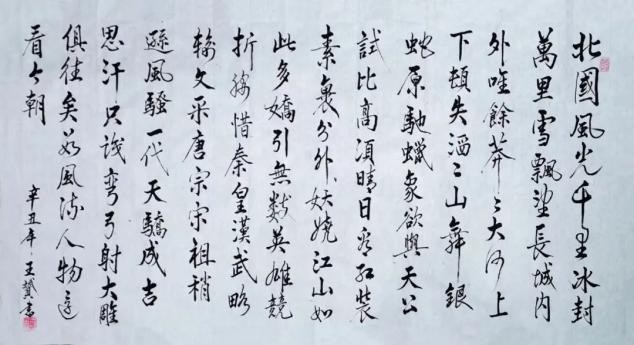 北國風光千里冰封
萬里雪飄望長城内
外唯餘莽〻大河上
下頓失滔〻山舞銀
蛇原馳蠟象欲與天公
試比高須晴日看紅裝
素裹分外妖嬈江山如
此多嬌引無数英雄競
折腰惜秦皇漢武略
輸文采唐宗宋祖稍
遜風騷一代天驕成吉
思汗只識弯弓射大雕
俱往矣数風流人物還
看今朝
辛丑年王贊書